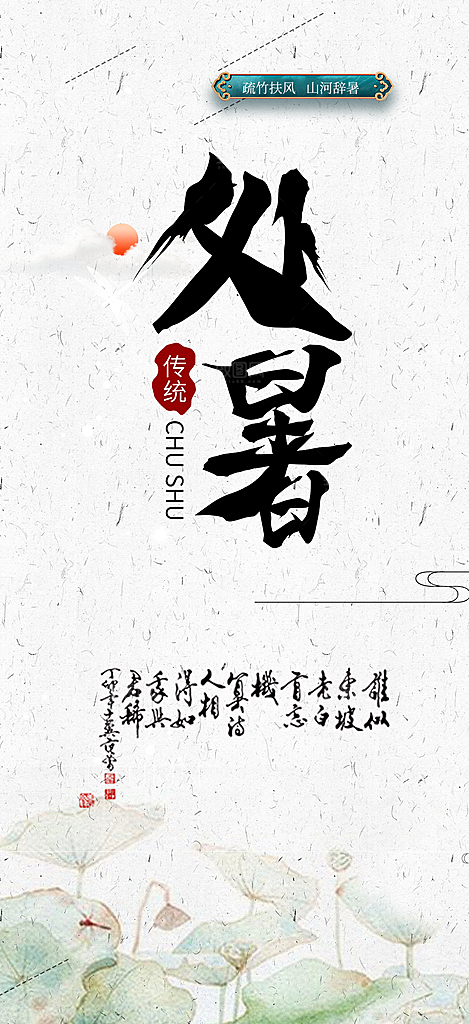 疏竹扶风 山河辞暑
处暑
传统
CHU SHU
誰似
東坡
老白
首忘
機
算詩
人相
得如
我與
君稀